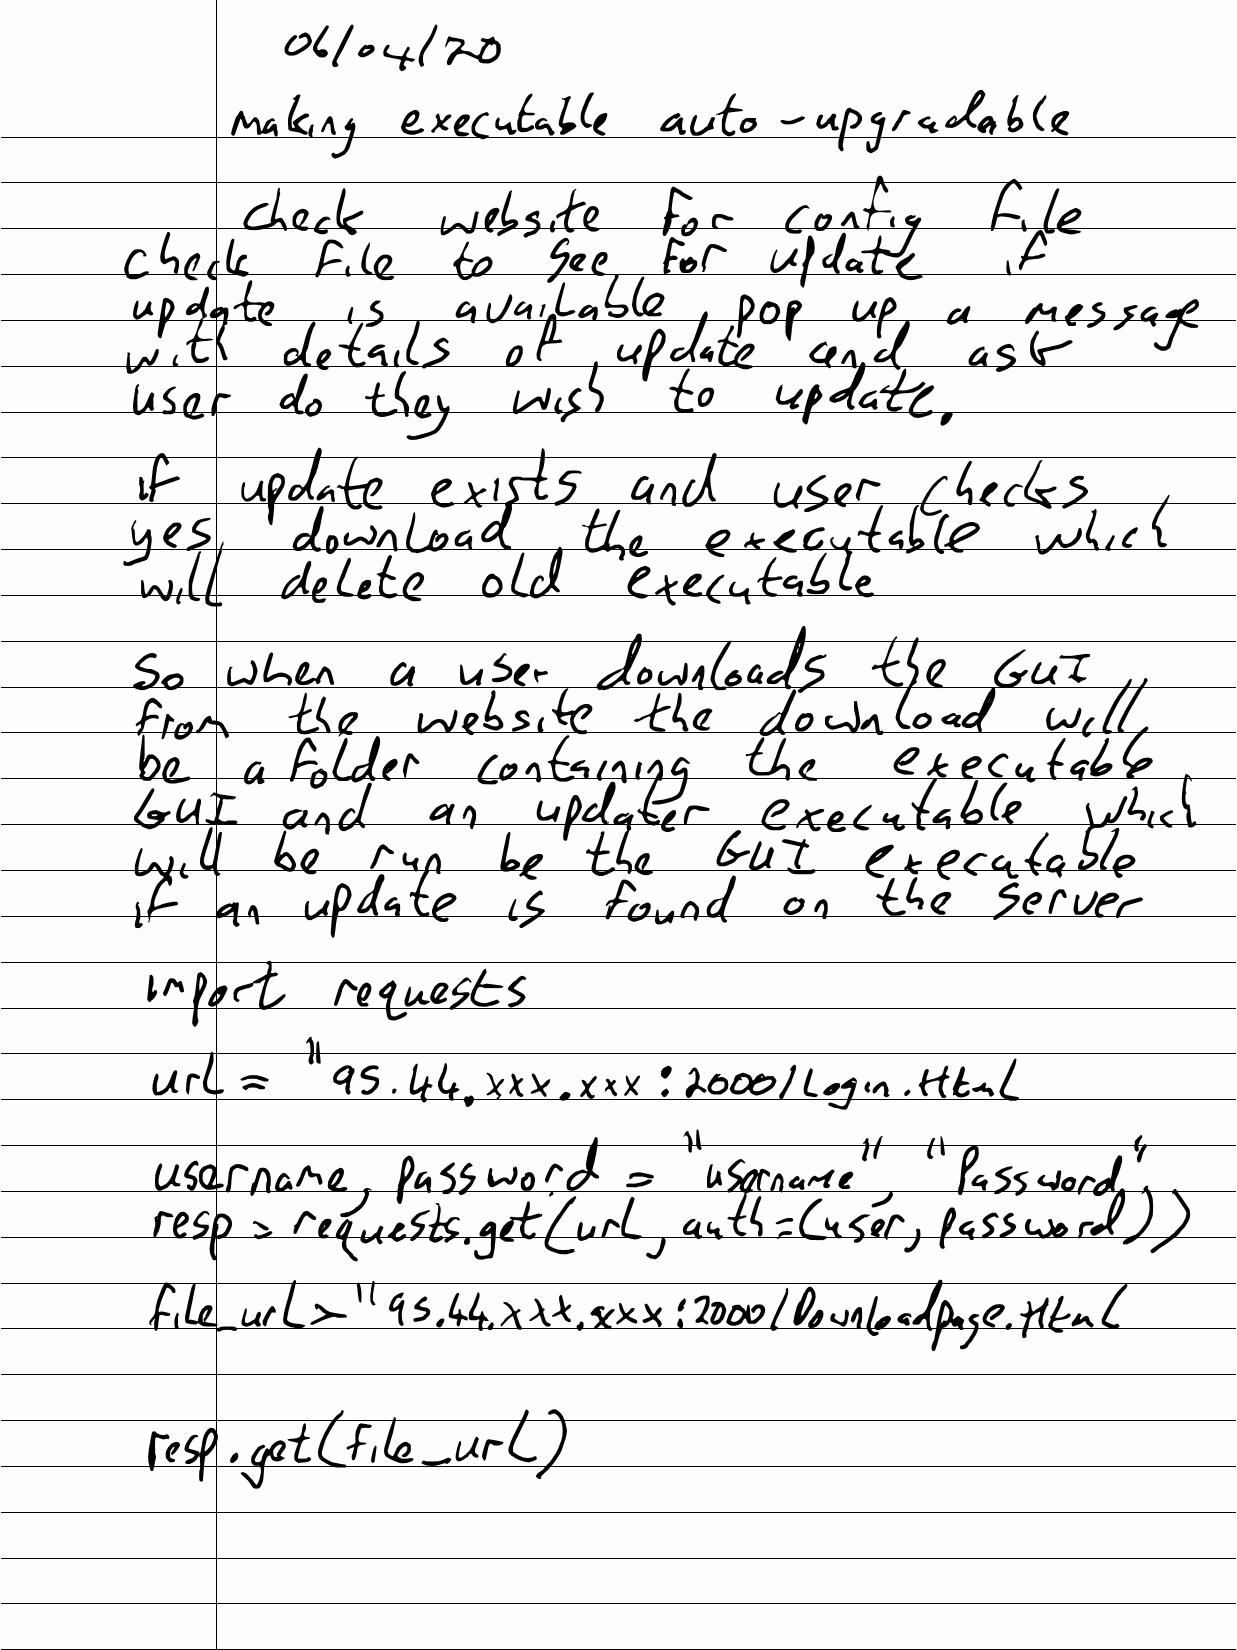 06/04/20
making executable auto-upgradable
check website for config file
check file to see for update if
update is available pop up a message
with details of update and ask
user do they wish to update.
if update exists and user checks
yes download the executable which
will delete old executable
So when a user downloads the GUI
from the website the download will
be a folder containing the executable
GUI and an updater executable which
will be run be the GUI executable
if an update is found on the server
import requests
url = "95.44.xxx.xxx:2000/Login.Html
username, password = "username", "Password"
resp = requests.get(url, auth=(user, password))
file_url = "95.44.xxx.xxx:2000/Downloadpage.Html
resp.get(file_url)